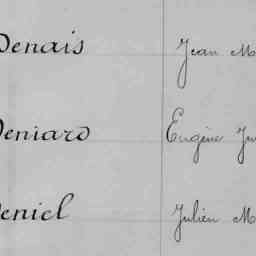 Denais Jean M
Deniard Eugène Ju
Deniel Julien M